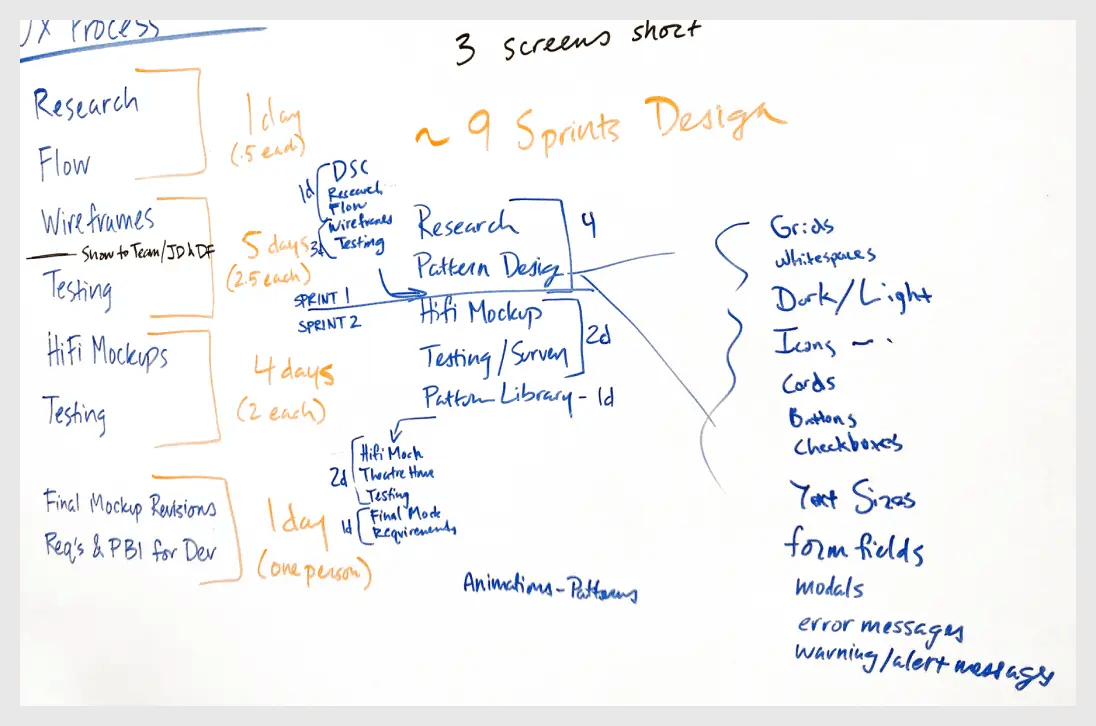 UX Process
3 screens short
Research
Flow
1 day
(.5 each)
Wireframes
Show to Team/JD & DF
Testing
5 days
(2.5 each)
HiFi Mockups
Testing
4 days
(2 each)
Final Mockup Revisions
Req's & PBI for Dev
1 day
(one person)
~ 9 Sprints Design
1d
DSC
Research
Flow
3d
Wireframes
Testing
SPRINT 1
SPRINT 2
Research
Pattern Design
4
Hifi Mockup
Testing/Survey
2d
Pattern Library - 1d
2d
Hifi Mock
Theatre Home
Testing
1d
Final Mock
Requirements
Animations - Patterns
Grids
Whitespaces
Dark/Light
Icons
Cards
Buttons
Checkboxes
Text Sizes
form fields
modals
error messages
warning/alert messages